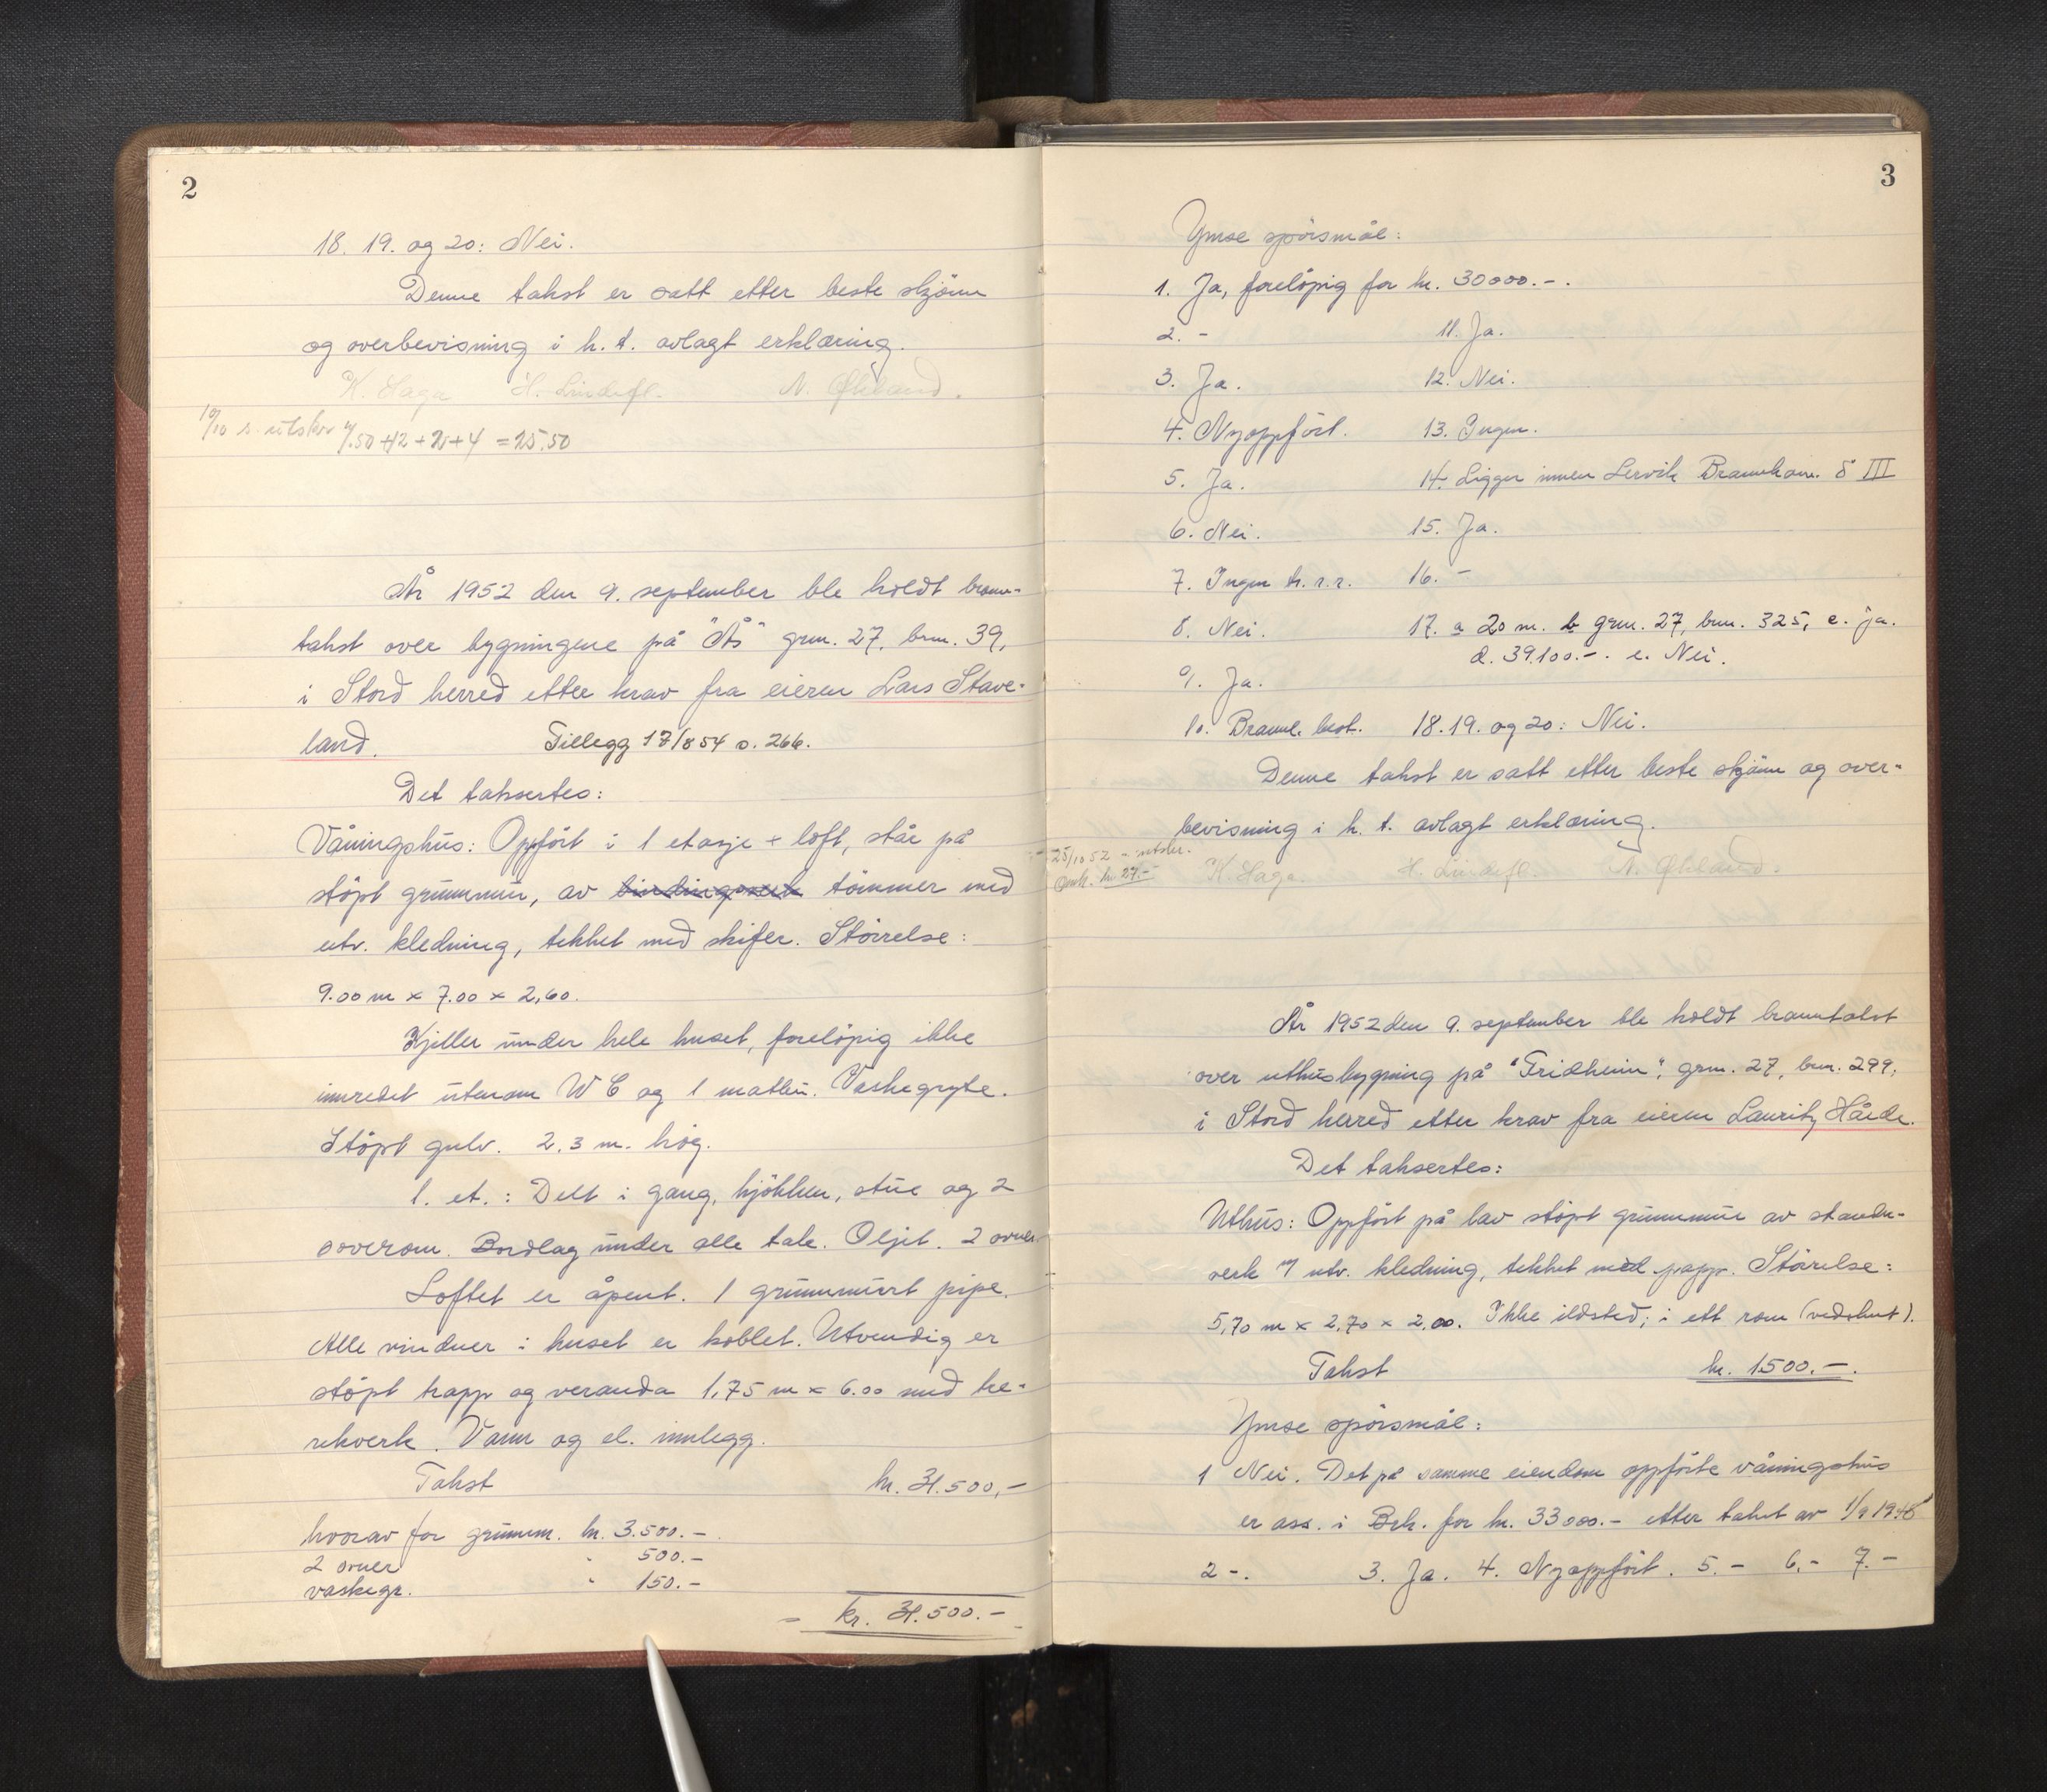 2
18. 19. og 20: Nei.
Denne takst er satt etter beste skjönn
og overbevisning i h. t. avlagt erklæring.
K. Haga H. Lindefl. N. Økland.
10/10 s. utskr 7.50 + 12 + 2 + 4 = 25.50
År 1952 den 9. september ble holdt brann-
takst over bygningene på "Ås" grn. 27, brn. 39,
i Stord herred etter krav fra eieren Lars Stave-
land. Tillegg 17/8 54 s. 266.
Det taksertes:
Våningshus: Oppfört i 1 etasje + loft, står på
stöpt grunnmur, av bindingsverk tömmer med
utv. kledning, tekket med skifer. Störrelse:
9.00 m x 7.00 x 2,60.
Kjeller under hele huset, forelöpig ikke
innredet utenom WC og 1 matbu. Vaskegryte.
Stöpt gulv. 2.3 m. hög.
1. et.: Delt i gang, kjökken, stue og 2
soverom. Bordlag under alle tak. Oljet. 2 ovner.
Loftet er åpent. 1 grunnmurt pipe.
Alle vinduer i huset er koblet. Utvendig er
stöpt trapp og veranda 1,75 m x 6.00 med tre-
rekverk. Vann og el. innlegg.
Takst kr. 31.500,-
hvorav for grunnm. kr. 3.500.-
2 ovner " 500.-
vaskegr. " 150.-
= kr. 31.500.-
3
Ymse spörsmål:
1. Ja, forelöpig for kr. 30000.-.
2. - 11. Ja.
3. Ja. 12. Nei.
4. Nyoppfört. 13. Ingen.
5. Ja. 14. Ligger innen Lervik Brannkom. § III
6. Nei. 15. Ja.
7. Ingen h. r. r. 16. -
8. Nei. 17. a 20 m. b grn. 27, brn. 325, c. ja.
d. 39.100.-. e. Nei.
9. Ja.
10. Brannl. best. 18. 19. og 20: Nei.
Denne takst er satt etter beste skjönn og over-
bevisning i h. t. avlagt erklæring.
25/10 52 - utskr.
Omk. kr. 27.-
K. Haga. H. Lindefl. N. Økland.
År 1952 den 9. september ble holdt branntakst
over uthusbygning på "Fridheim", grn. 27, brn. 299,
i Stord herred etter krav fra eieren Lauritz Hårde.
Det taksertes:
Uthus: Oppfört på lav stöpt grunnmur av stender-
verk m utv. kledning, tekket med papp. Störrelse:
5,70 m x 2,70 x 2.00. Ikke ildsted; i ett rom (vedskut).
Takst kr. 1500.-.
Ymse spörsmål:
1 Nei. Det på samme eiendom oppförte våningshus
er ass. i Brk. for kr. 33000.- etter takst av 1/9 1948
2 -. 3. Ja. 4. Nyoppfört. 5. - 6. - 7. -